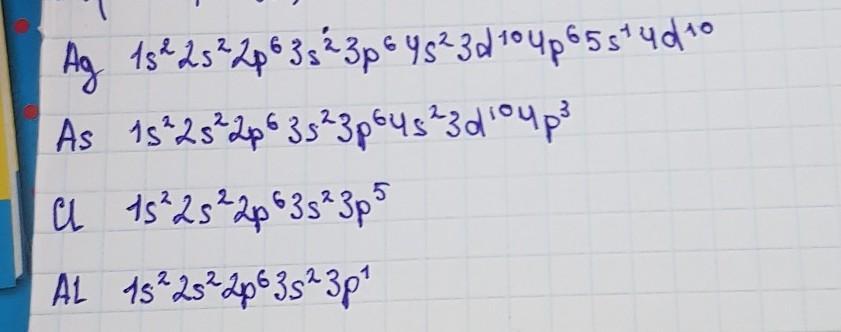 Ag 1s²2s²2p⁶3s²3p⁶4s²3d¹⁰4p⁶5s¹4d¹⁰
As 1s²2s²2p⁶3s²3p⁶4s²3d¹⁰4p³
Cl 1s²2s²2p⁶3s²3p⁵
AL 1s²2s²2p⁶3s²3p¹